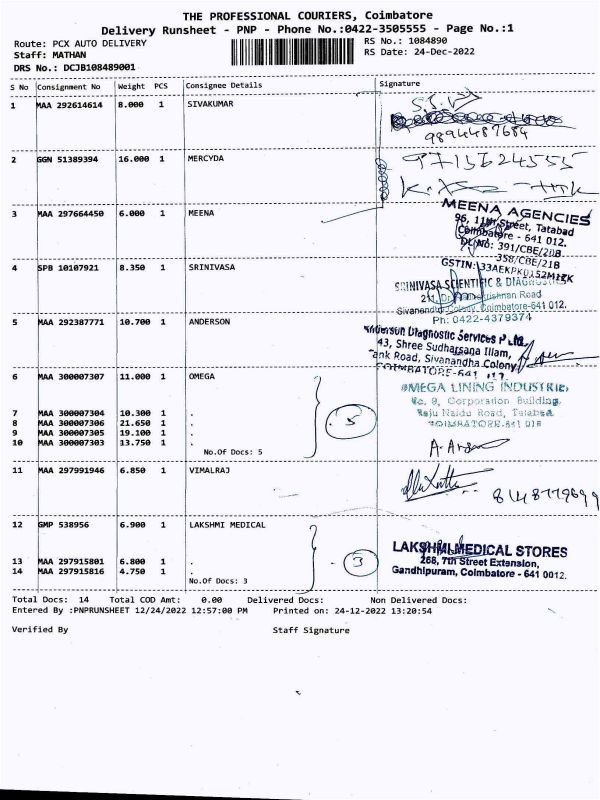 THE PROFESSIONAL COURIERS, Coimbatore
Delivery Runsheet - PNP - Phone No.:0422-3505555 - Page No.:1
Route: PCX AUTO DELIVERY
RS No.: 1084890
Staff: MATHAN
RS Date: 24-Dec-2022
DRS No.: DCJB108489001
S No Consignment No Weight PCS Consignee Details Signature
1 MAA 292614614 8.000 1 SIVAKUMAR
9894487684
2 GGN 51389394 16.000 1 MERCYDA
9715624555
3 MAA 297664450 6.000 1 MEENA
MEENA AGENCIES
96, 11th Street, Tatabad
Coimbatore - 641 012.
DL No: 391/CBE/20B
358/CBE/21B
4 SPB 10107921 8.350 1 SRINIVASA
GSTIN:
SRINIVASA SCIENTIFIC & DIAGNOSTICS
Sivanandha Colony, Coimbatore-641 012.
Ph: 0422-4379374
5 MAA 292387771 10.700 1 ANDERSON
Anderson Diagnostic Services P Ltd.
43, Shree Sudharsana Illam,
Tank Road, Sivanandha Colony
COIMBATORE-641
6 MAA 300007307 11.000 1 OMEGA
OMEGA LINING INDUSTRIES
No. 9, Corporation Building,
Raju Naidu Road, Tatabad
COIMBATORE-641 018
7 MAA 300007304 10.300 1 .
8 MAA 300007306 21.650 1 .
9 MAA 300007305 19.100 1 .
10 MAA 300007303 13.750 1 .
5
No.Of Docs: 5
11 MAA 297991946 6.850 1 VIMALRAJ
8148779699
12 GMP 538956 6.900 1 LAKSHMI MEDICAL
LAKSHMI MEDICAL STORES
268, 7th Street Extension,
Gandhipuram, Coimbatore - 641 0012.
13 MAA 297915801 6.800 1 .
14 MAA 297915816 4.750 1 .
3
No.Of Docs: 3
Total Docs: 14 Total COD Amt: 0.00 Delivered Docs: Non Delivered Docs:
Entered By :PNPRUNSHEET 12/24/2022 12:57:00 PM Printed on: 24-12-2022 13:20:54
Verified By Staff Signature